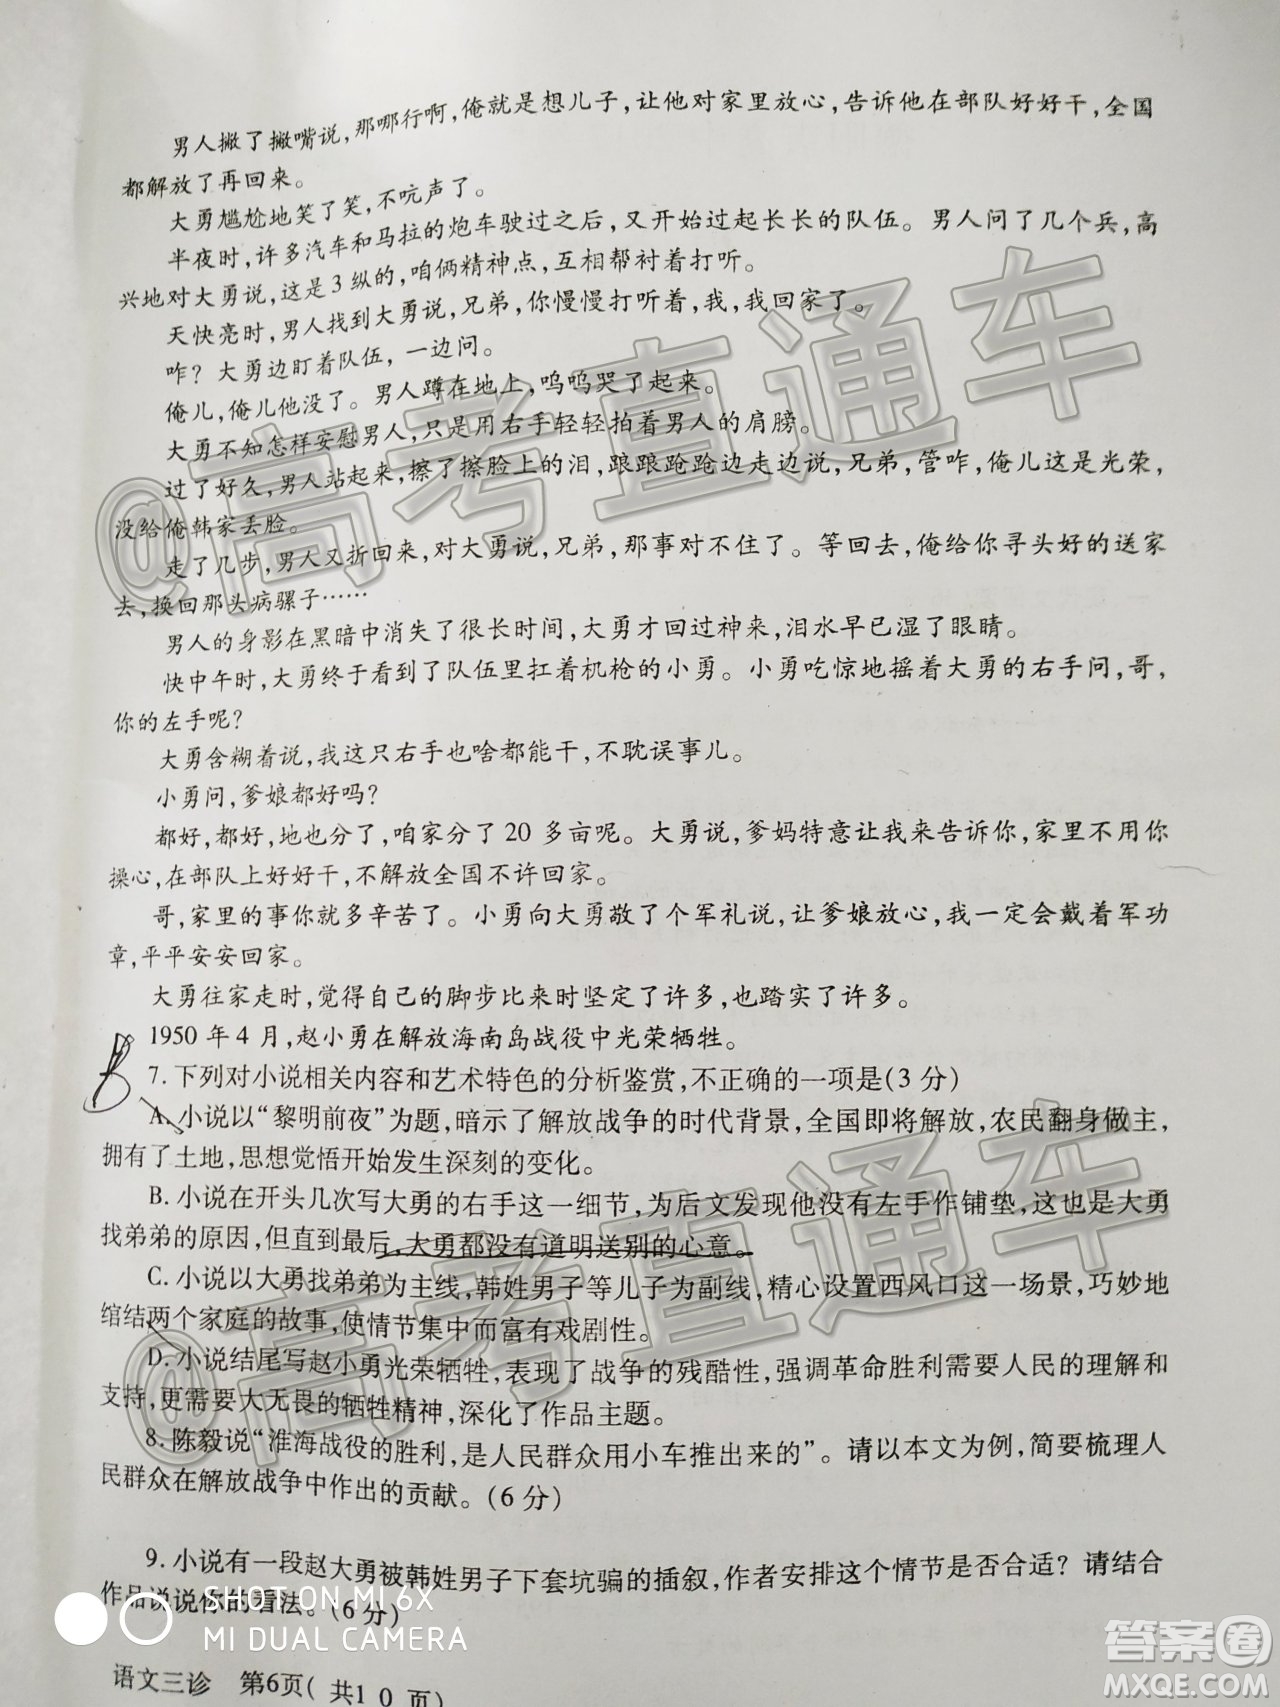 男人撇了撇嘴说，那哪行啊，俺就是想儿子，让他对家里放心，告诉他在部队好好干，全国
都解放了再回来。
大勇尴尬地笑了笑，不吭声了。
半夜时，许多汽车和马拉的炮车驶过之后，又开始过起长长的队伍。男人问了几个兵，高
兴地对大勇说，这是3纵的，咱俩精神点，互相帮衬着打听。
天快亮时，男人找到大勇说，兄弟，你慢慢打听着，我，我回家了。
咋？大勇边盯着队伍，一边问。
俺儿，俺儿他没了。男人蹲在地上，呜呜哭了起来。
大勇不知怎样安慰男人，只是用右手轻轻拍着男人的肩膀。
过了好久，男人站起来，擦了擦脸上的泪，踉踉跄跄边走边说，兄弟，管咋，俺儿这是光荣，
没给俺韩家丢脸。
走了几步，男人又折回来，对大勇说，兄弟，那事对不住了。等回去，俺给你寻头好的送家
去，换回那头病骡子……
男人的身影在黑暗中消失了很长时间，大勇才回过神来，泪水早已湿了眼睛。
快中午时，大勇终于看到了队伍里扛着机枪的小勇。小勇吃惊地摇着大勇的右手问，哥，
你的左手呢？
大勇含糊着说，我这只右手也啥都能干，不耽误事儿。
小勇问，爹娘都好吗？
都好，都好，地也分了，咱家分了20多亩呢。大勇说，爹妈特意让我来告诉你，家里不用你
操心，在部队上好好干，不解放全国不许回家。
哥，家里的事你就多辛苦了。小勇向大勇敬了个军礼说，让爹娘放心，我一定会戴着军功
章，平平安安回家。
大勇往家走时，觉得自己的脚步比来时坚定了许多，也踏实了许多。
1950年4月，赵小勇在解放海南岛战役中光荣牺牲。
B
7.下列对小说相关内容和艺术特色的分析鉴赏，不正确的一项是(3分)
A.小说以“黎明前夜”为题，暗示了解放战争的时代背景，全国即将解放，农民翻身做主，
拥有了土地，思想觉悟开始发生深刻的变化。
B.小说在开头几次写大勇的右手这一细节，为后文发现他没有左手作铺垫，这也是大勇
找弟弟的原因，但直到最后，大勇都没有道明送别的心意。
C.小说以大勇找弟弟为主线，韩姓男子等儿子为副线，精心设置西风口这一场景，巧妙地
绾结两个家庭的故事，使情节集中而富有戏剧性。
D.小说结尾写赵小勇光荣牺牲，表现了战争的残酷性，强调革命胜利需要人民的理解和
支持，更需要大无畏的牺牲精神，深化了作品主题。
8.陈毅说“淮海战役的胜利，是人民群众用小车推出来的”。请以本文为例，简要梳理人
民群众在解放战争中作出的贡献。(6分)
9.小说有一段赵大勇被韩姓男子下套坑骗的插叙，作者安排这个情节是否合适？请结合
作品说说你的看法。(6分)
语文三诊 第6页(共10页)
@高考直通车
@高考直通车
SHOT ON MI 6X
MI DUAL CAMERA
答案圈
MXQE.COM